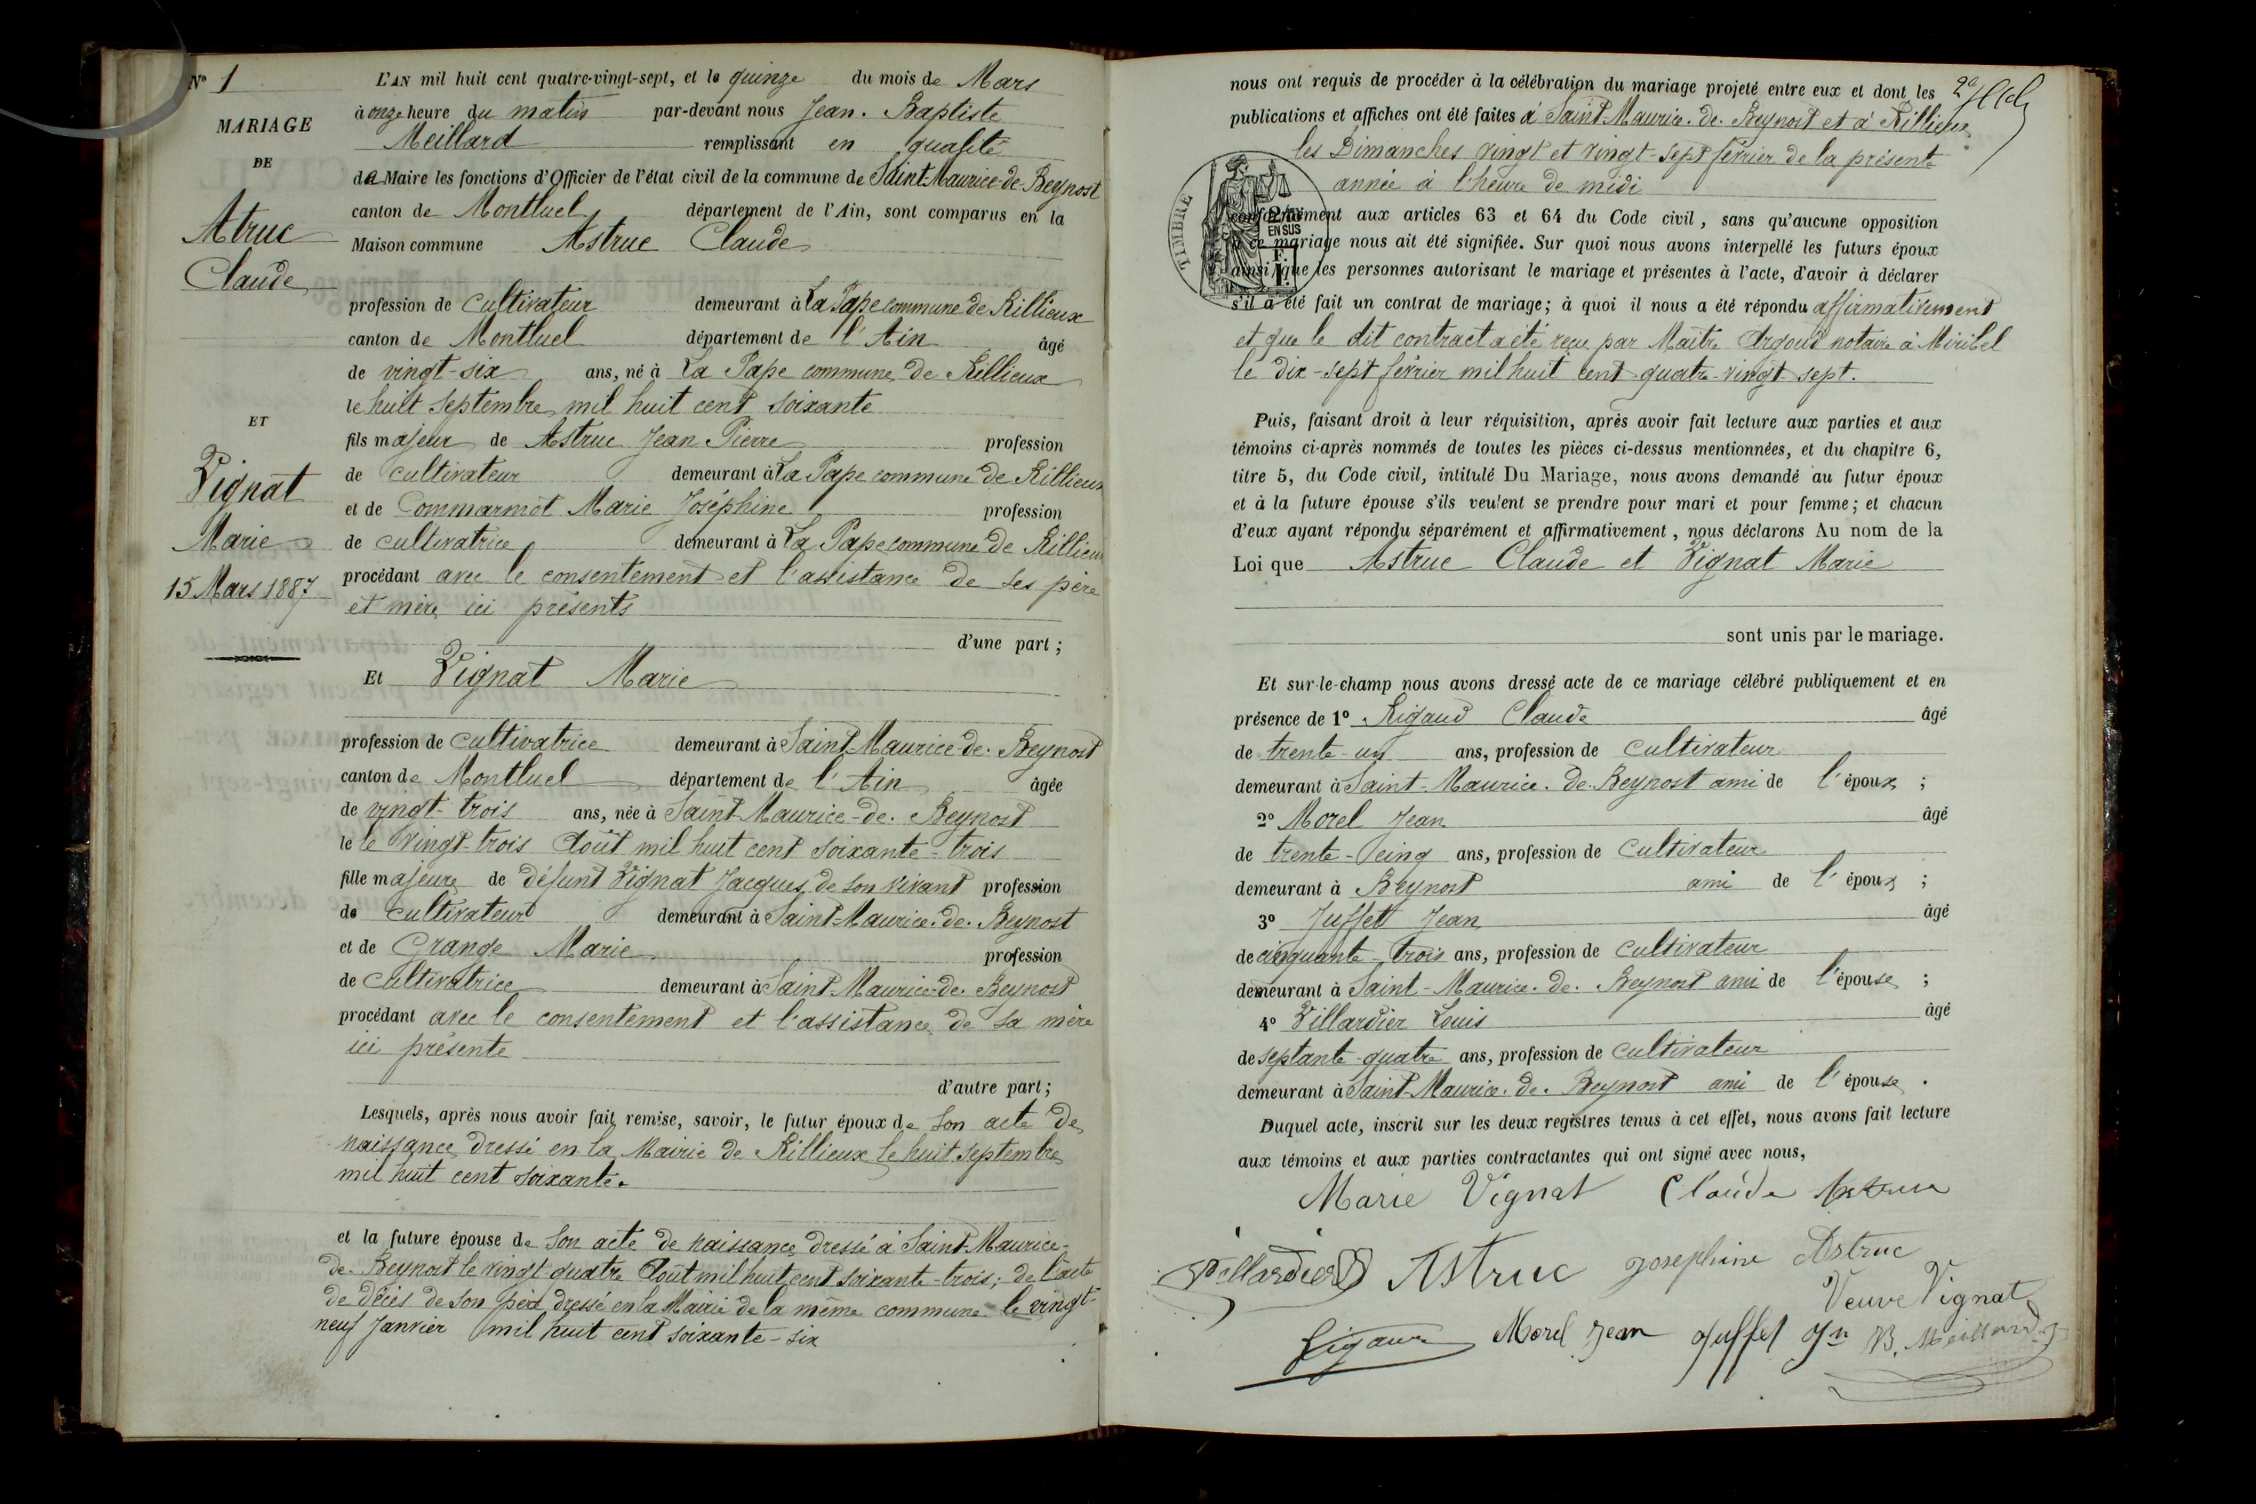 N° 1
MARIAGE
DE
Atruc
Claude
ET
Vignat
Marie
15 Mars 1887
L'AN mil huit cent quatre-vingt-sept, et le quinze du mois de Mars
à onze heure du matin par-devant nous Jean. Baptiste
Meillard remplissant en qualité
de Maire les fonctions d'Officier de l'état civil de la commune de Saint-Maurice-de-Beynost
canton de Montluel département de l'Ain, sont comparus en la
Maison commune Astruc Claude
profession de cultivateur demeurant à La Pape commune de Rillieux
canton de Montluel département de l'Ain âgé
de vingt-six ans, né à La Pape commune de Rillieux
le huit Septembre mil huit cent soixante
fils majeur de Astruc Jean Pierre profession
de cultivateur demeurant à La Pape commune de Rillieux
et de Commarmot Marie Joséphine profession
de cultivatrice demeurant à La Pape commune de Rillieux
procédant avec le consentement et l'assistance de ses père
et mère ici présents
d'une part ;
Et Vignat Marie
profession de cultivatrice demeurant à Saint-Maurice-de-Beynost
canton de Montluel département de l'Ain âgée
de vingt-trois ans, née à Saint-Maurice-de-Beynost
le le vingt-trois Août mil huit cent soixante-trois
fille majeure de défunt Vignat Jacques de son vivant profession
de cultivateur demeurant à Saint-Maurice-de-Beynost
et de Grange Marie profession
de cultivatrice demeurant à Saint-Maurice-de-Beynost
procédant avec le consentement et l'assistance de sa mère
ici présente
d'autre part ;
Lesquels, après nous avoir fait remise, savoir, le futur époux de son acte de
naissance dressé en la Mairie de Rillieux le huit septembre
mil huit cent soixante.
et la future épouse de son acte de naissance dressé à Saint-Maurice-
de-Beynost le vingt quatre Août mil huit cent soixante-trois; de l'acte
de décès de son père dressé en la Mairie de la même commune le vingt-
neuf Janvier mil huit cent soixante-six
nous ont requis de procéder à la célébration du mariage projeté entre eux et dont les
publications et affiches ont été faites à Saint-Maurice-de-Beynost et à Rillieux
les Dimanches vingt et vingt-sept février de la présente
année à l'heure de midi
TIMBRE
EN SUS
conformément aux articles 63 et 64 du Code civil, sans qu'aucune opposition
à ce mariage nous ait été signifiée. Sur quoi nous avons interpellé les futurs époux
ainsi que les personnes autorisant le mariage et présentes à l'acte, d'avoir à déclarer
s'il a été fait un contrat de mariage; à quoi il nous a été répondu affirmativement
et que le dit contract a été reçu par Maître Argoud notaire à Miribel
le dix-sept février mil huit cent quatre-vingt sept.
Puis, faisant droit à leur réquisition, après avoir fait lecture aux parties et aux
témoins ci-après nommés de toutes les pièces ci-dessus mentionnées, et du chapitre 6,
titre 5, du Code civil, intitulé Du Mariage, nous avons demandé au futur époux
et à la future épouse s'ils veulent se prendre pour mari et pour femme; et chacun
d'eux ayant répondu séparément et affirmativement, nous déclarons Au nom de la
Loi que Astruc Claude et Vignat Marie
sont unis par le mariage.
Et sur-le-champ nous avons dressé acte de ce mariage célébré publiquement et en
présence de 1° Rigaud Claude âgé
de trente-un ans, profession de cultivateur
demeurant à Saint-Maurice-de-Beynost ami de l'époux ;
2° Morel Jean âgé
de trente-cinq ans, profession de cultivateur
demeurant à Beynost ami de l'époux ;
3° Juffet Jean âgé
de cinquante-trois ans, profession de cultivateur
demeurant à Saint-Maurice-de-Beynost ami de l'épouse ;
4° Villardier Louis âgé
de septante-quatre ans, profession de cultivateur
demeurant à Saint-Maurice-de-Beynost ami de l'épouse .
Duquel acte, inscrit sur les deux registres tenus à cet effet, nous avons fait lecture
aux témoins et aux parties contractantes qui ont signé avec nous,
Marie Vignat Claude Astruc
Villardier Astruc Josephine Astruc
Veuve Vignat
Rigaud Morel Jean Juffet Jn B. Meillard